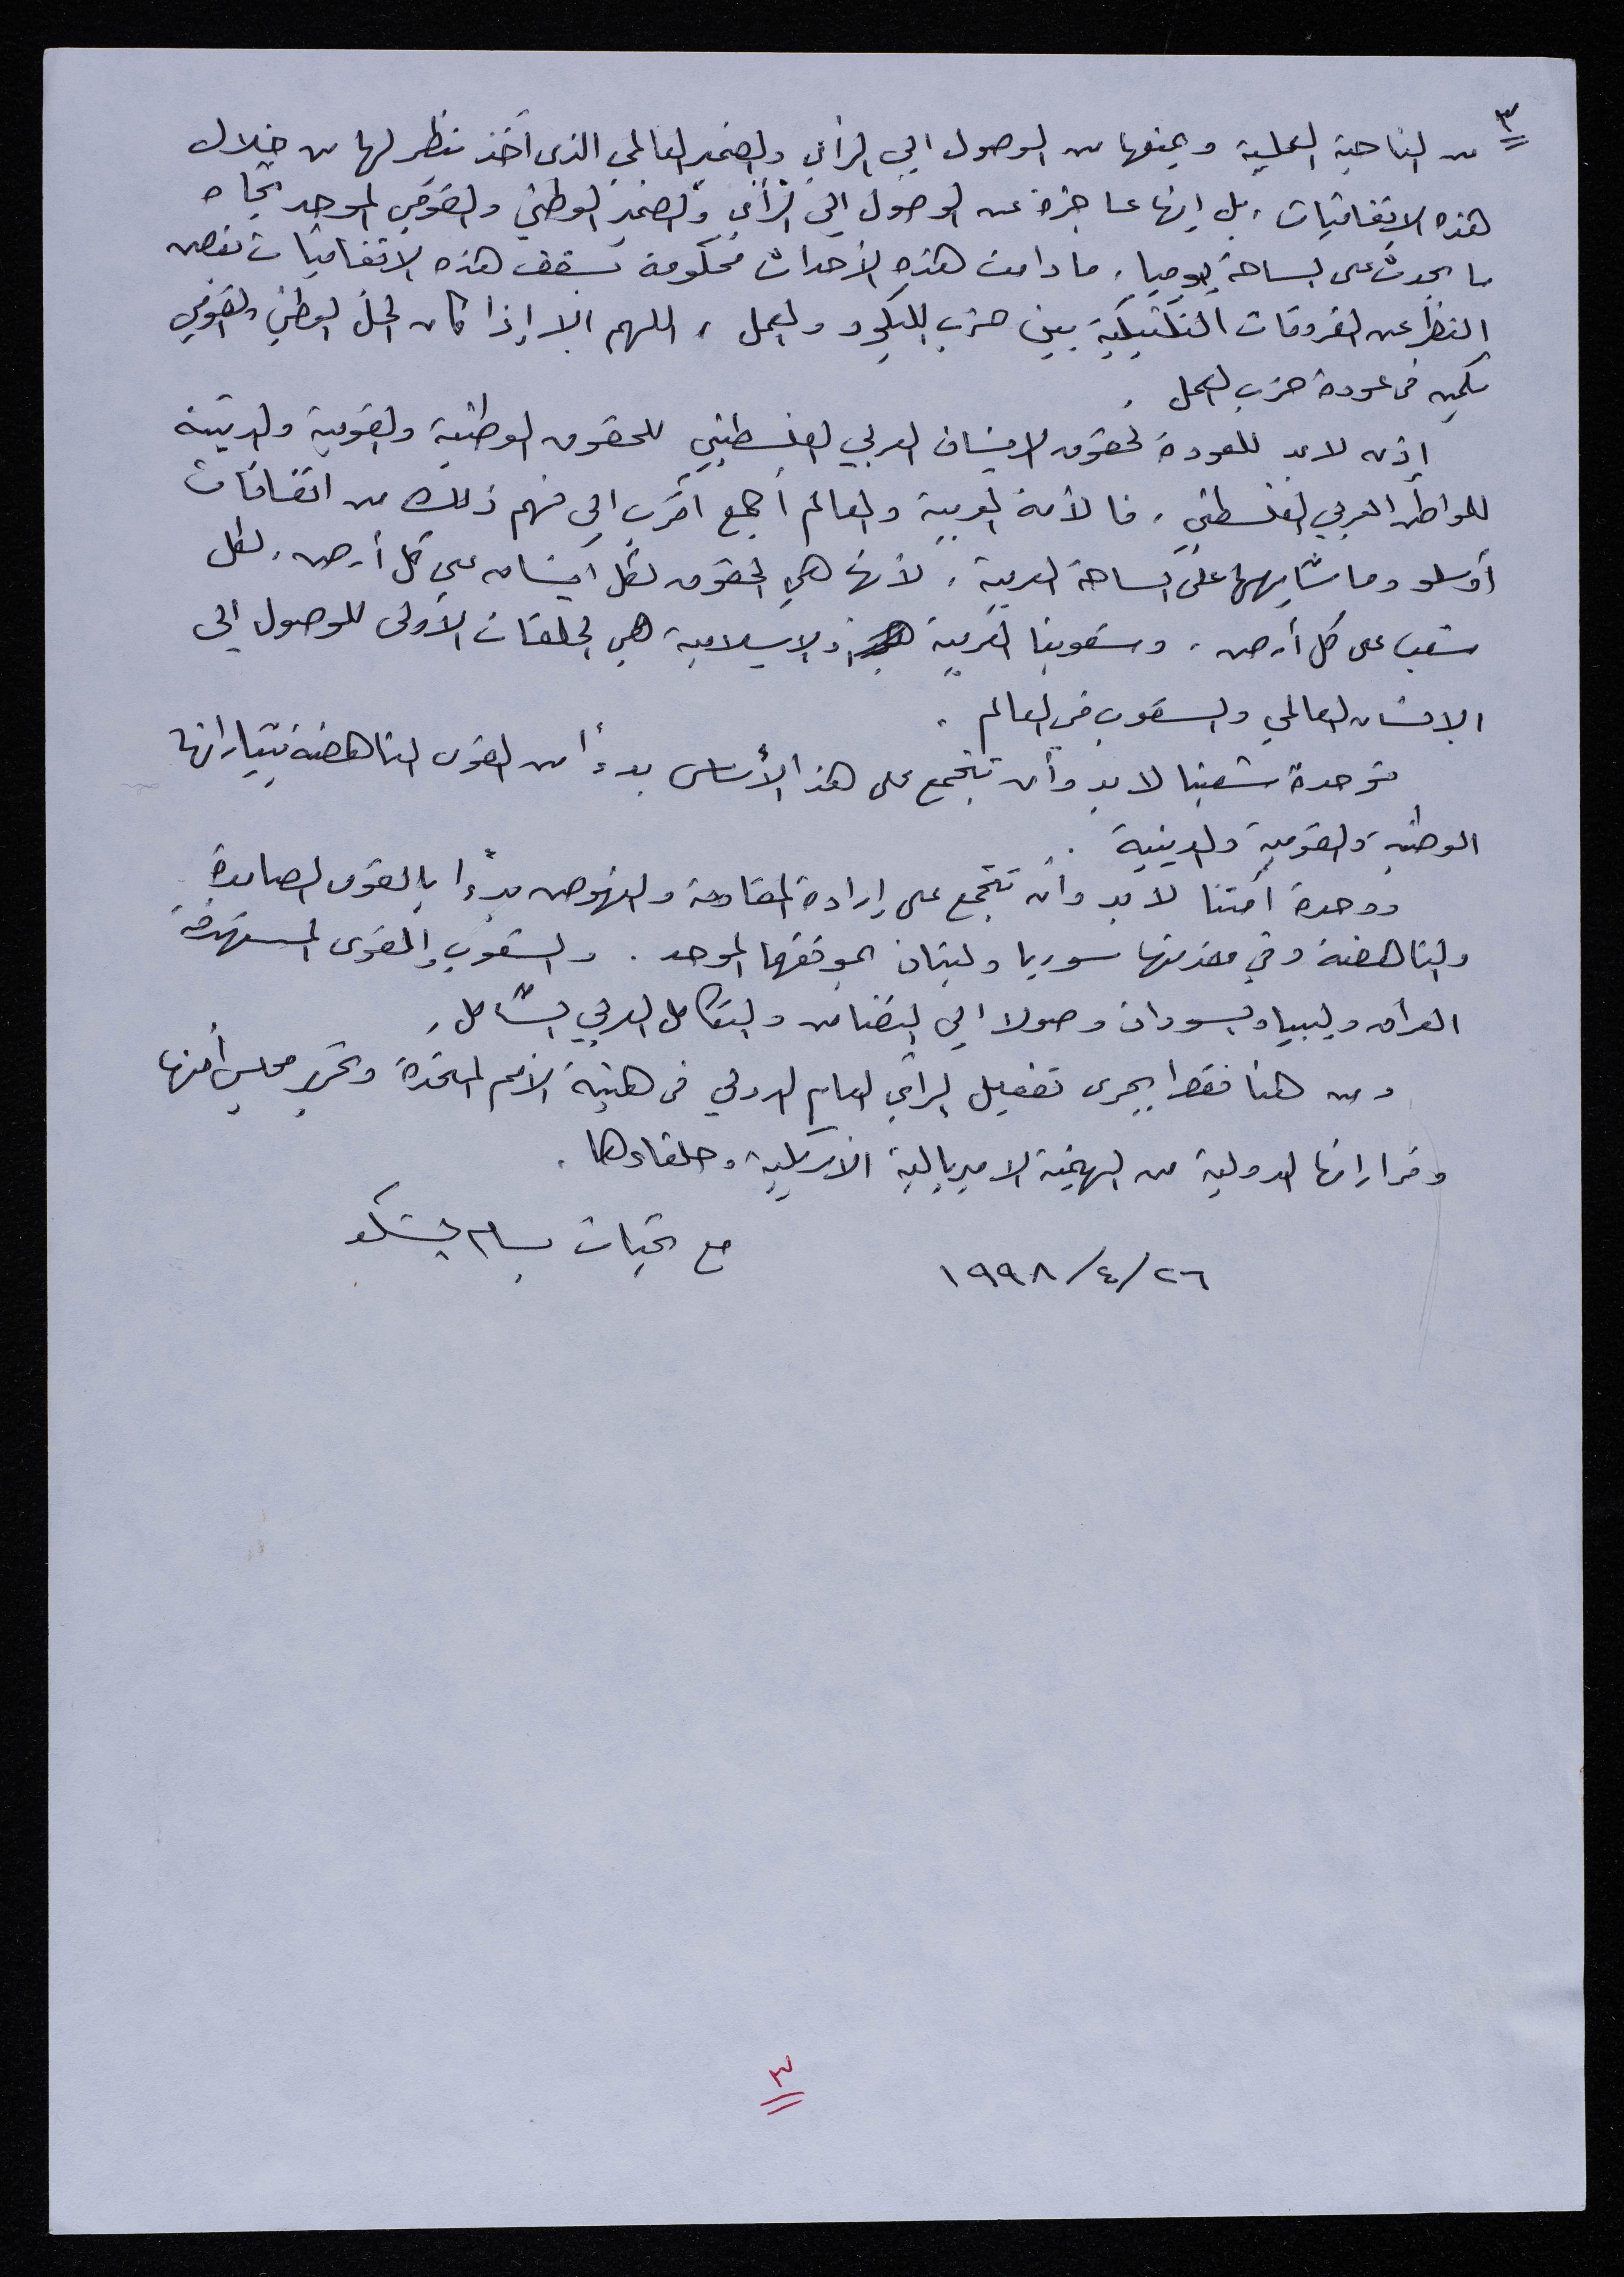 ٣
من الناحية العملية ويمنعها من الوصول الى الرأي والضمير العالمي الذي أخذ ينظر لها من خلال
هذه الاتفاقيات، بل إنها عاجزة عن الوصول الى الرأي والضمير الوطني والقومي الموحد تجاه
ما يحدث على الساحة يوميا، ما دامت هذه الأحداث محكومة بسقف هذه الاتفاقيات بغض
النظر عن الفروقات التكتيكية بين حزب الليكود والعمل، اللهم الا إذا كان الحل الوطني والقومي
يكمن في عودة حزب العمل.
إذن لابد للعودة لحقوق الانسان العربي الفلسطيني للحقوق الوطنية والقومية والدينية
للمواطن العربي الفلسطيني، فالأمة العربية والعالم أجمع أقرب الى فهم ذلك من اتفاقات
أوسلو وما شابهها على الساحة العربية، لأنها هي الحقوق لكل انسان على كل أرض، لكل
شعب على كل أرض، وشعوبنا العربية والاسلامية هي الحلقات الأولى للوصول الى
الانسان العالمي والشعوب في العالم.
فوحدة شعبنا لابد وأن تتجمع على هذا الأساس بدءاً من القوى الناهضة بتياراتها
الوطنية والقومية والدينية.
ووحدة أمتنا لابد وأن تتجمع على إرادة المقاومة والنهوض بدءاً بالقوى الصامدة
والناهضة وفي مقدمتها سوريا ولبنان بموقفهما الموحد. والشعوب والقوى المستهدفة
العراق وليبيا والسودان وصولا الى التضامن والتكامل العربي الشامل.
ومن هنا فقط يجرى تفعيل الرأي العام الدولي في هيئة الأمم المتحدة وتحرير مجلس أمنها
وقراراتها الدولية من الهيمنة الامبريالية الأمريكية وحلفاءها.
مع تحيات بسام الشكعة
٢٦/٤/١٩٩٨
٣